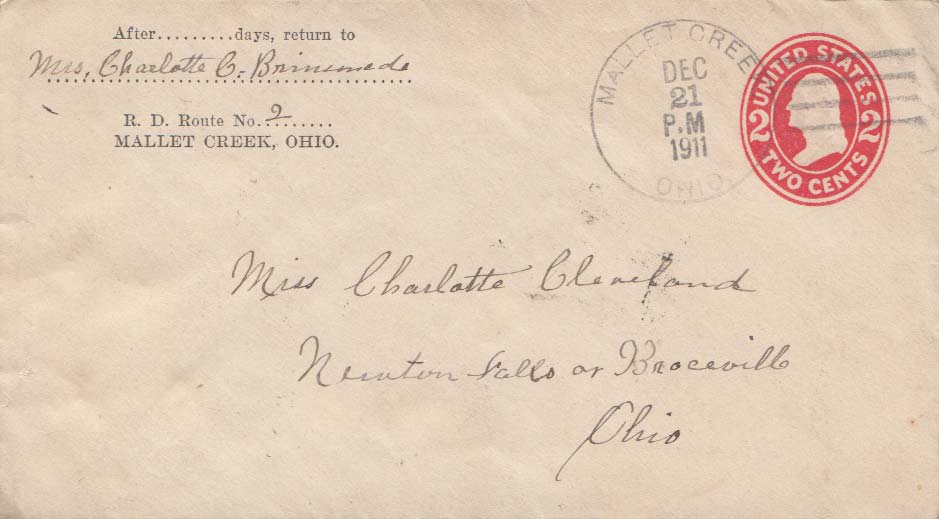 After.........days, return to
Mrs, Charlotte C. Brinsmade
R. D. Route No. 2
MALLET CREEK, OHIO.
MALLET CREE
DEC
21
P.M
1911
OHIO
UNITED STATES
2 2
TWO CENTS
Miss Charlotte Cleveland
Newton Falls or Braceville
Ohio